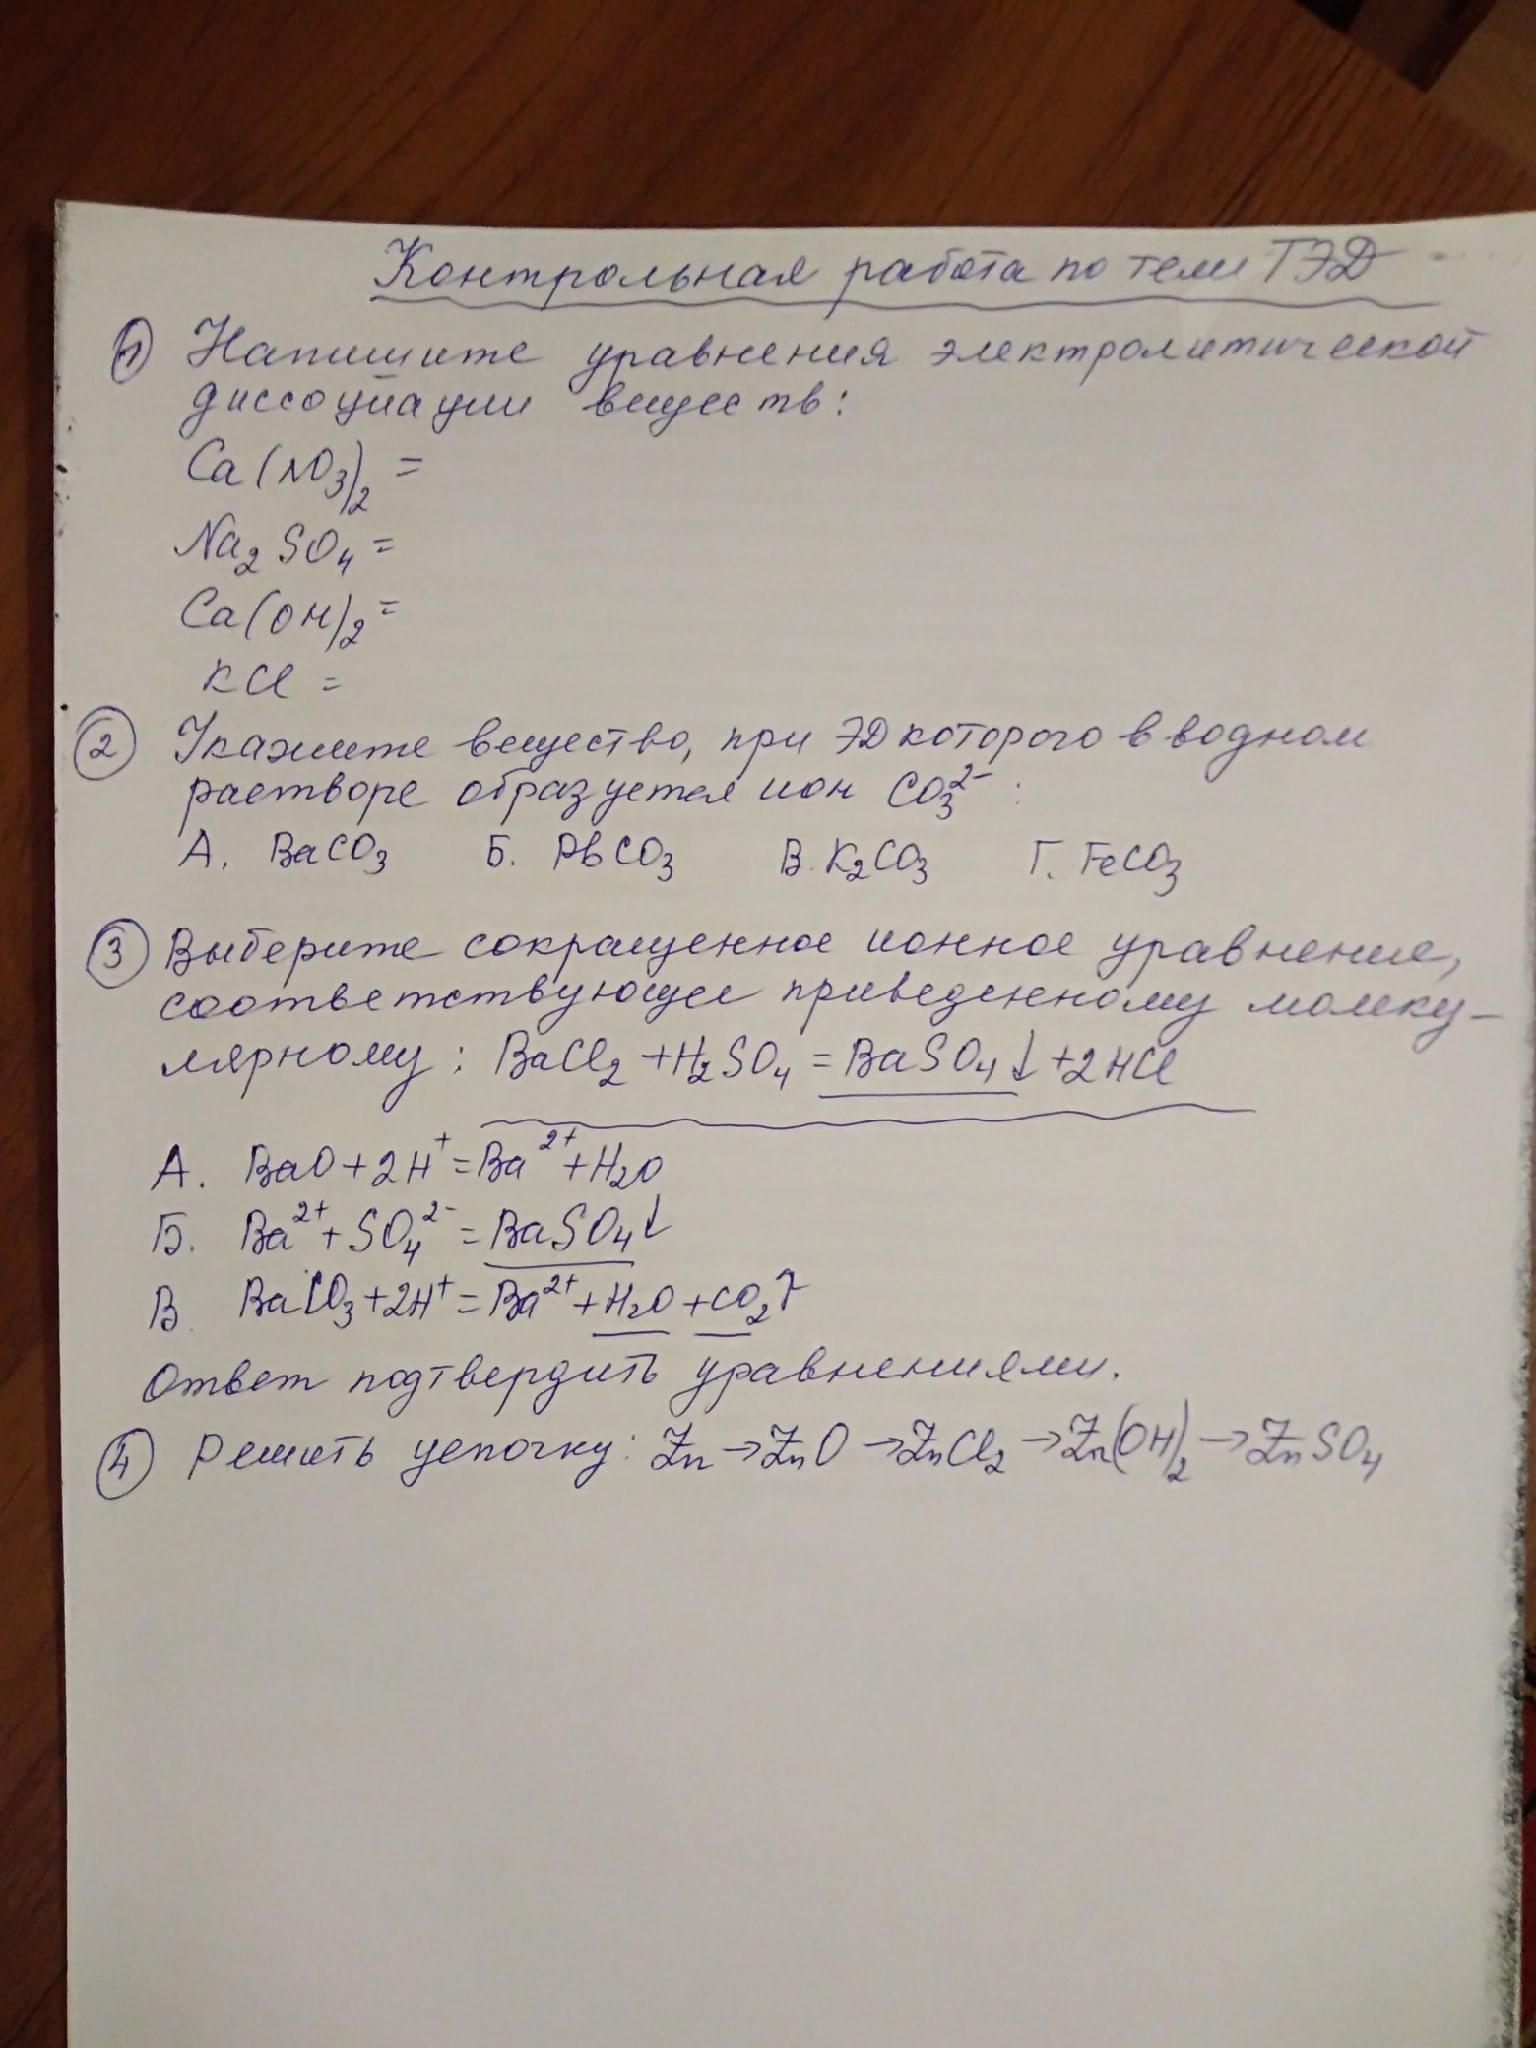 Контрольная работа по теме ТЭД
① Напишите уравнения электролитической
диссоциации веществ:
Ca(NO₃)₂ =
Na₂SO₄ =
Ca(OH)₂ =
KCl =
② Укажите вещество, при ЭД которого в водном
растворе образуется ион CO₃²⁻ :
А. BaCO₃ Б. PbCO₃ В. K₂CO₃ Г. FeCO₃
③ Выберите сокращенное ионное уравнение,
соответствующее приведенному молеку-
лярному : BaCl₂ + H₂SO₄ = BaSO₄↓ + 2HCl
А. BaO + 2H⁺ = Ba²⁺ + H₂O
Б. Ba²⁺ + SO₄²⁻ = BaSO₄↓
В BaCO₃ + 2H⁺ = Ba²⁺ + H₂O + CO₂↑
Ответ подтвердить уравнениями.
④ Решить цепочку: Zn → ZnO → ZnCl₂ → Zn(OH)₂ → ZnSO₄